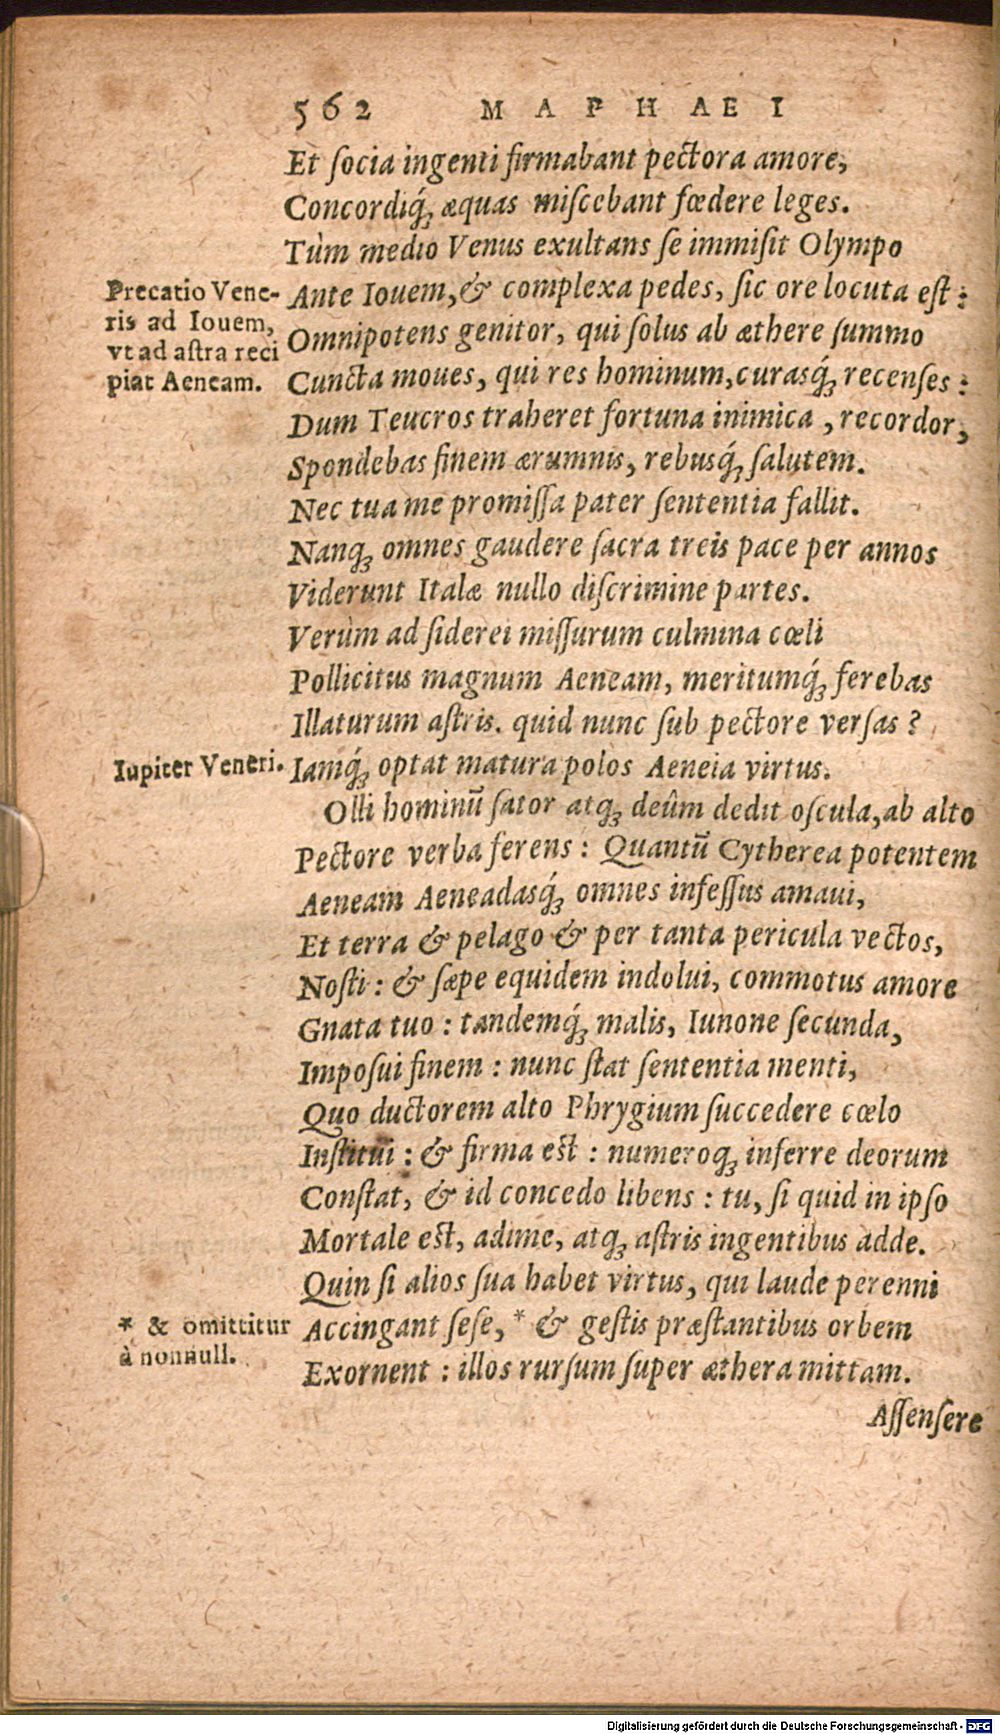 562 MAPHAEI
Et ſocia ingenti firmabant pectora amore,
Concordiq́ꝫ æquas miſcebant fœdere leges.
Tùm medio Venus exultans ſe immiſit Olympo
Precatio Vene-
ris ad Iouem,
vt ad aſtra reci
piat Aeneam.
Ante Iouem, & complexa pedes, ſic ore locuta eſt:
Omnipotens genitor, qui ſolus ab æthere ſummo
Cuncta moues, qui res hominum, curasq́ꝫ recenſes:
Dum Teucros traheret fortuna inimica, recordor,
Spondebas finem ærumnis, rebusq́ꝫ ſalutem.
Nec tua me promiſſa pater ſententia fallit.
Nanqꝫ omnes gaudere ſacra treis pace per annos
Viderunt Italæ nullo diſcrimine partes.
Verùm ad ſiderei miſſurum culmina cœli
Pollicitus magnum Aeneam, meritumq́ꝫ ferebas
Illaturum aſtris. quid nunc ſub pectore verſas?
Iupiter Veneri.
Iamq́ꝫ optat matura polos Aeneia virtus.
Olli hominū ſator atqꝫ deûm dedit oſcula, ab alto
Pectore verba ferens: Quantū Cytherea potentem
Aeneam Aeneadasq́ꝫ omnes infeſſus amaui,
Et terra & pelago & per tanta pericula vectos,
Noſti: & ſæpe equidem indolui, commotus amore
Gnata tuo: tandemq́ꝫ malis, Iunone ſecunda,
Impoſui finem: nunc ſtat ſententia menti,
Quo ductorem alto Phrygium ſuccedere cœlo
Inſtitui: & firma eſt: numeroqꝫ inferre deorum
Conſtat, & id concedo libens: tu, ſi quid in ipſo
Mortale eſt, adime, atqꝫ aſtris ingentibus adde.
Quin ſi alios ſua habet virtus, qui laude perenni
* & omittitur
à nonnull.
Accingant ſeſe, * & geſtis præſtantibus orbem
Exornent: illos rurſum ſuper æthera mittam.
Aſſenſere
Digitalisierung gefördert durch die Deutsche Forschungsgemeinschaft - DFG